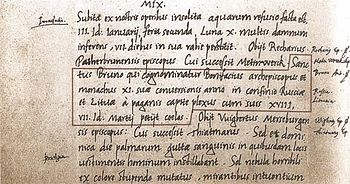 MIX.
Inundatio. Subita ex nostris omnibus insolita aquarum refusio facta est
III. Id. Ianuarij, feria secunda, Luna X. multis damnum
inferens, VII. diebus in sua rabie perstitit. Obijt Recharius
Patherbrunensis episcopus. Cui succeßit Methinwerck. Sanc
tus Bruno qui cognominatur Bonifacius archiepiscopus et
monachus XI. suæ conuersionis anno in confinio Rusciæ
et Lituæ à paganis capite plexus cum suis XVIII,
VII. Id. Martij petijt cœlos. Obijt Vuigbertus Mersburgen
sis episcopus. Cui succeßit Thiatmarus. Sed et domi-
nica die palmarum guttæ sanguinis in quibusdam locis
uestimentis hominum instillabant. Sol nebula horribili
ex colore stupendo mutatus, mirantibus intuentium